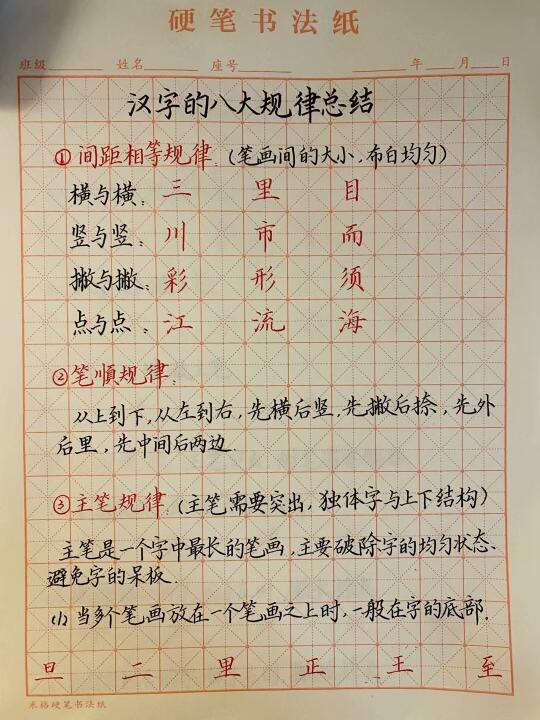 硬笔书法纸
班级 姓名 座号 年 月 日
汉字的八大规律总结
①间距相等规律.(笔画间的大小,布白均匀)
横与横: 三 里 目
竖与竖: 川 市 而
撇与撇: 彩 形 须
点与点: 江 流 海
②笔顺规律:
从上到下,从左到右,先横后竖,先撇后捺,先外
后里,先中间后两边.
③主笔规律:(主笔需要突出,独体字与上下结构)
主笔是一个字中最长的笔画,主要破除字的均匀状态.
避免字的呆板.
(1)当多个笔画放在一个笔画之上时,一般在字的底部.
旦 二 里 正 王 至
米格硬笔书法纸